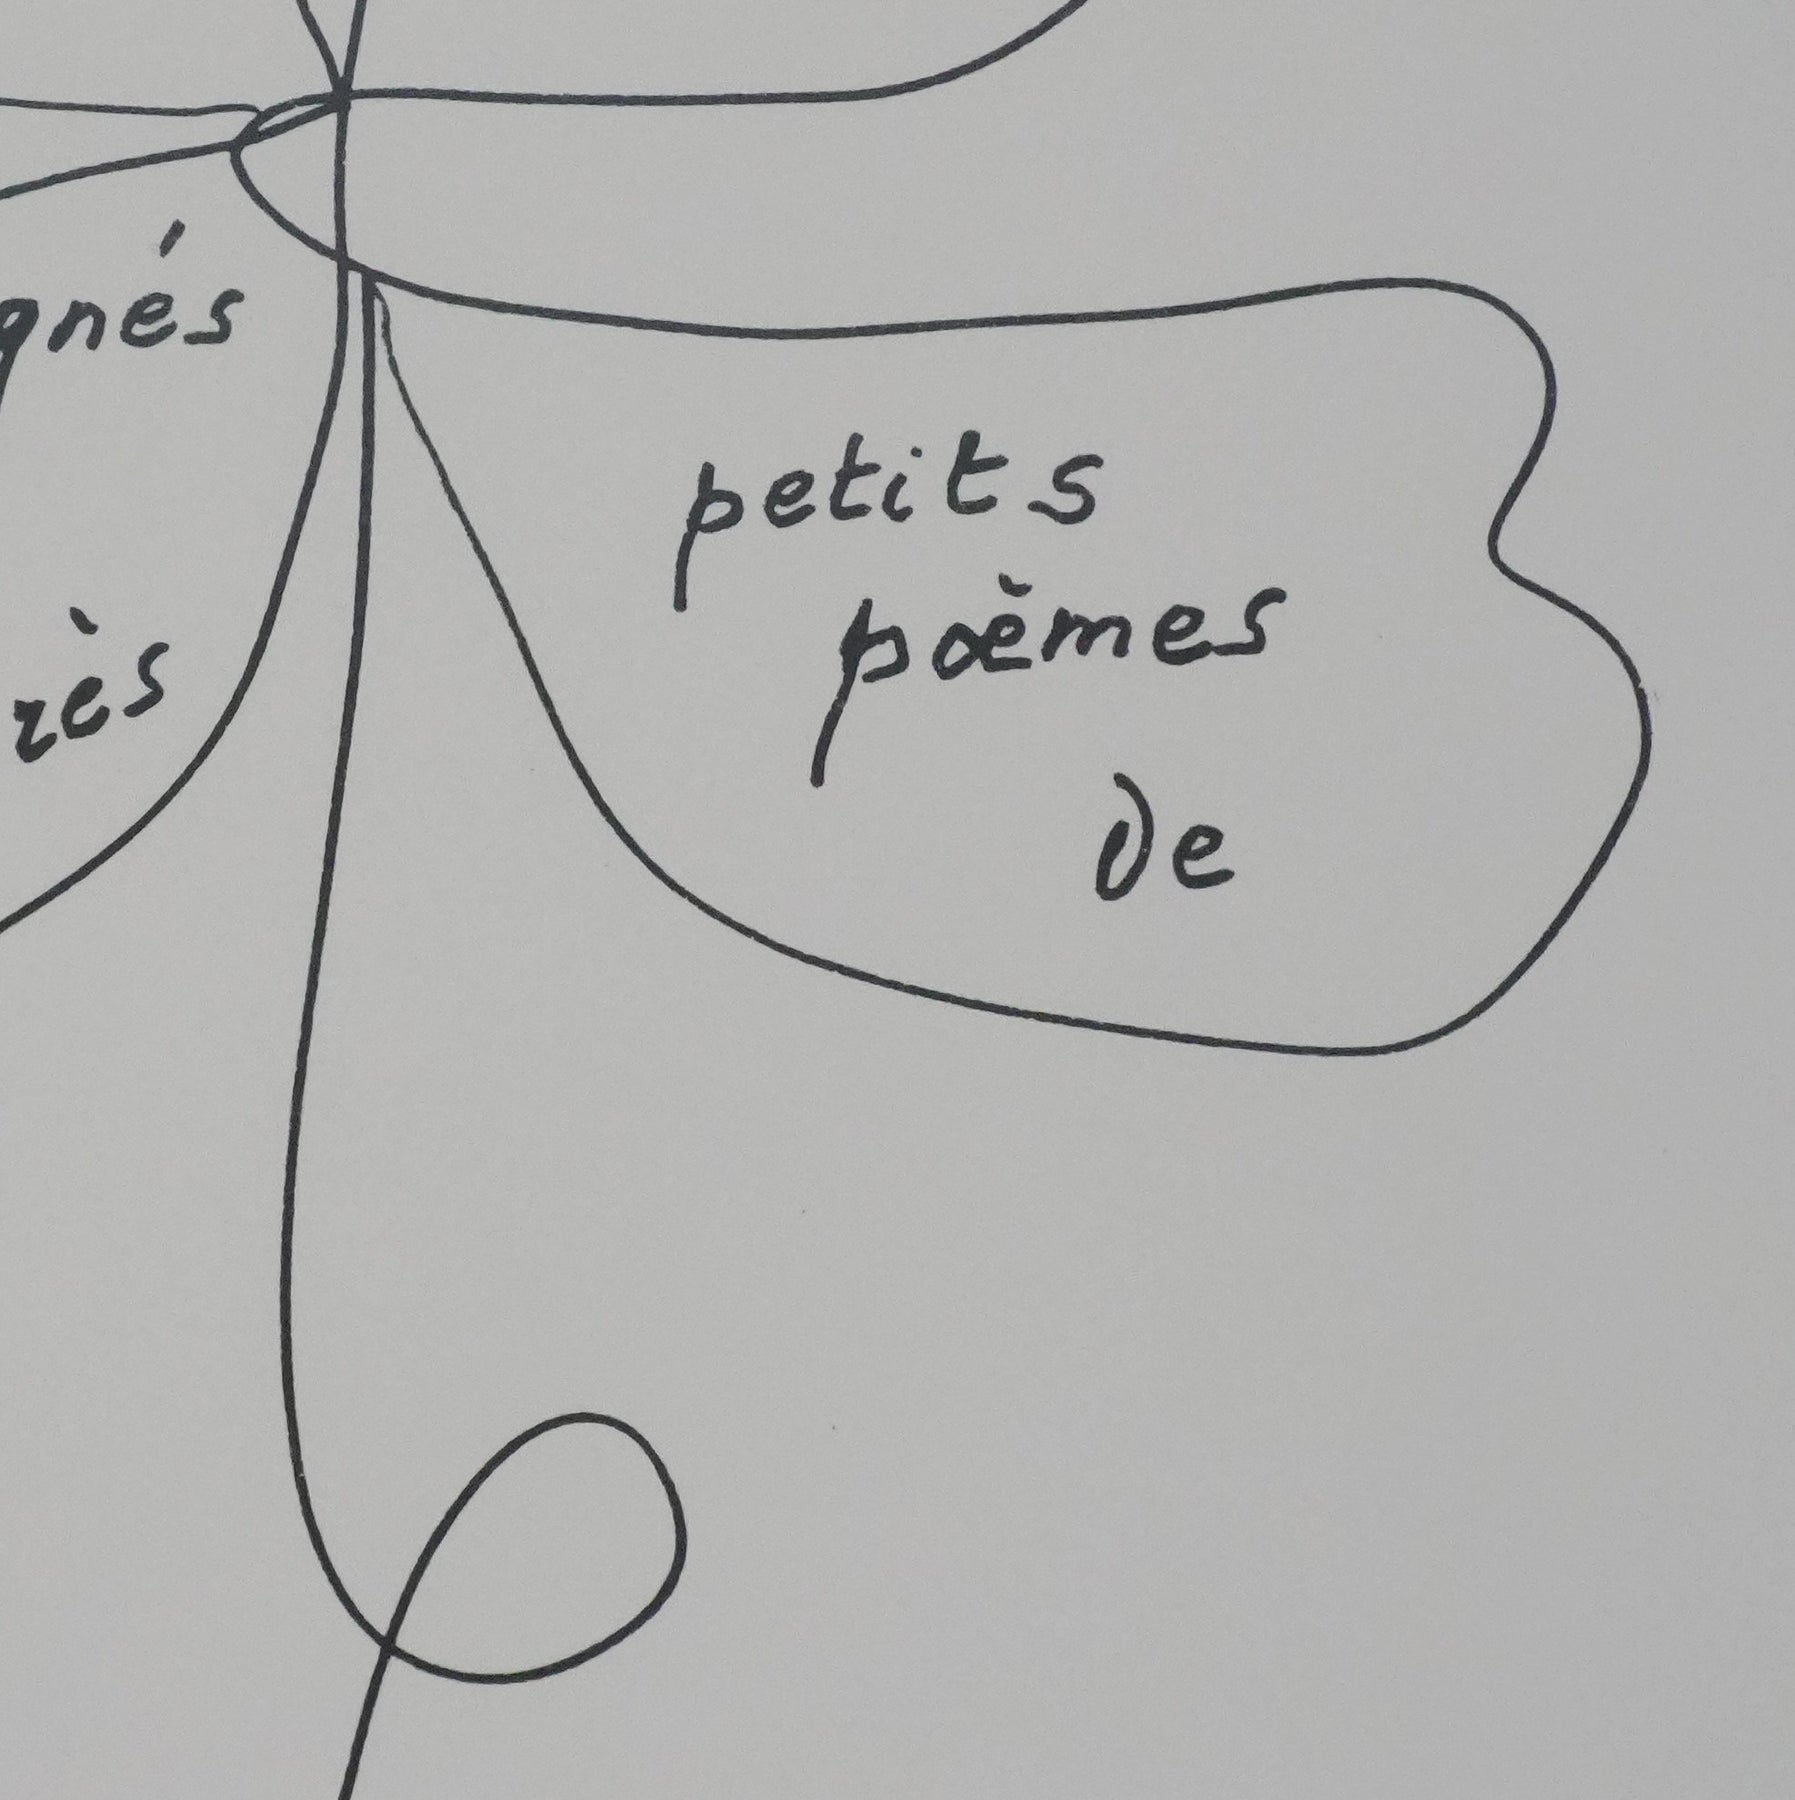 gnés
petits
poèmes
rès
de